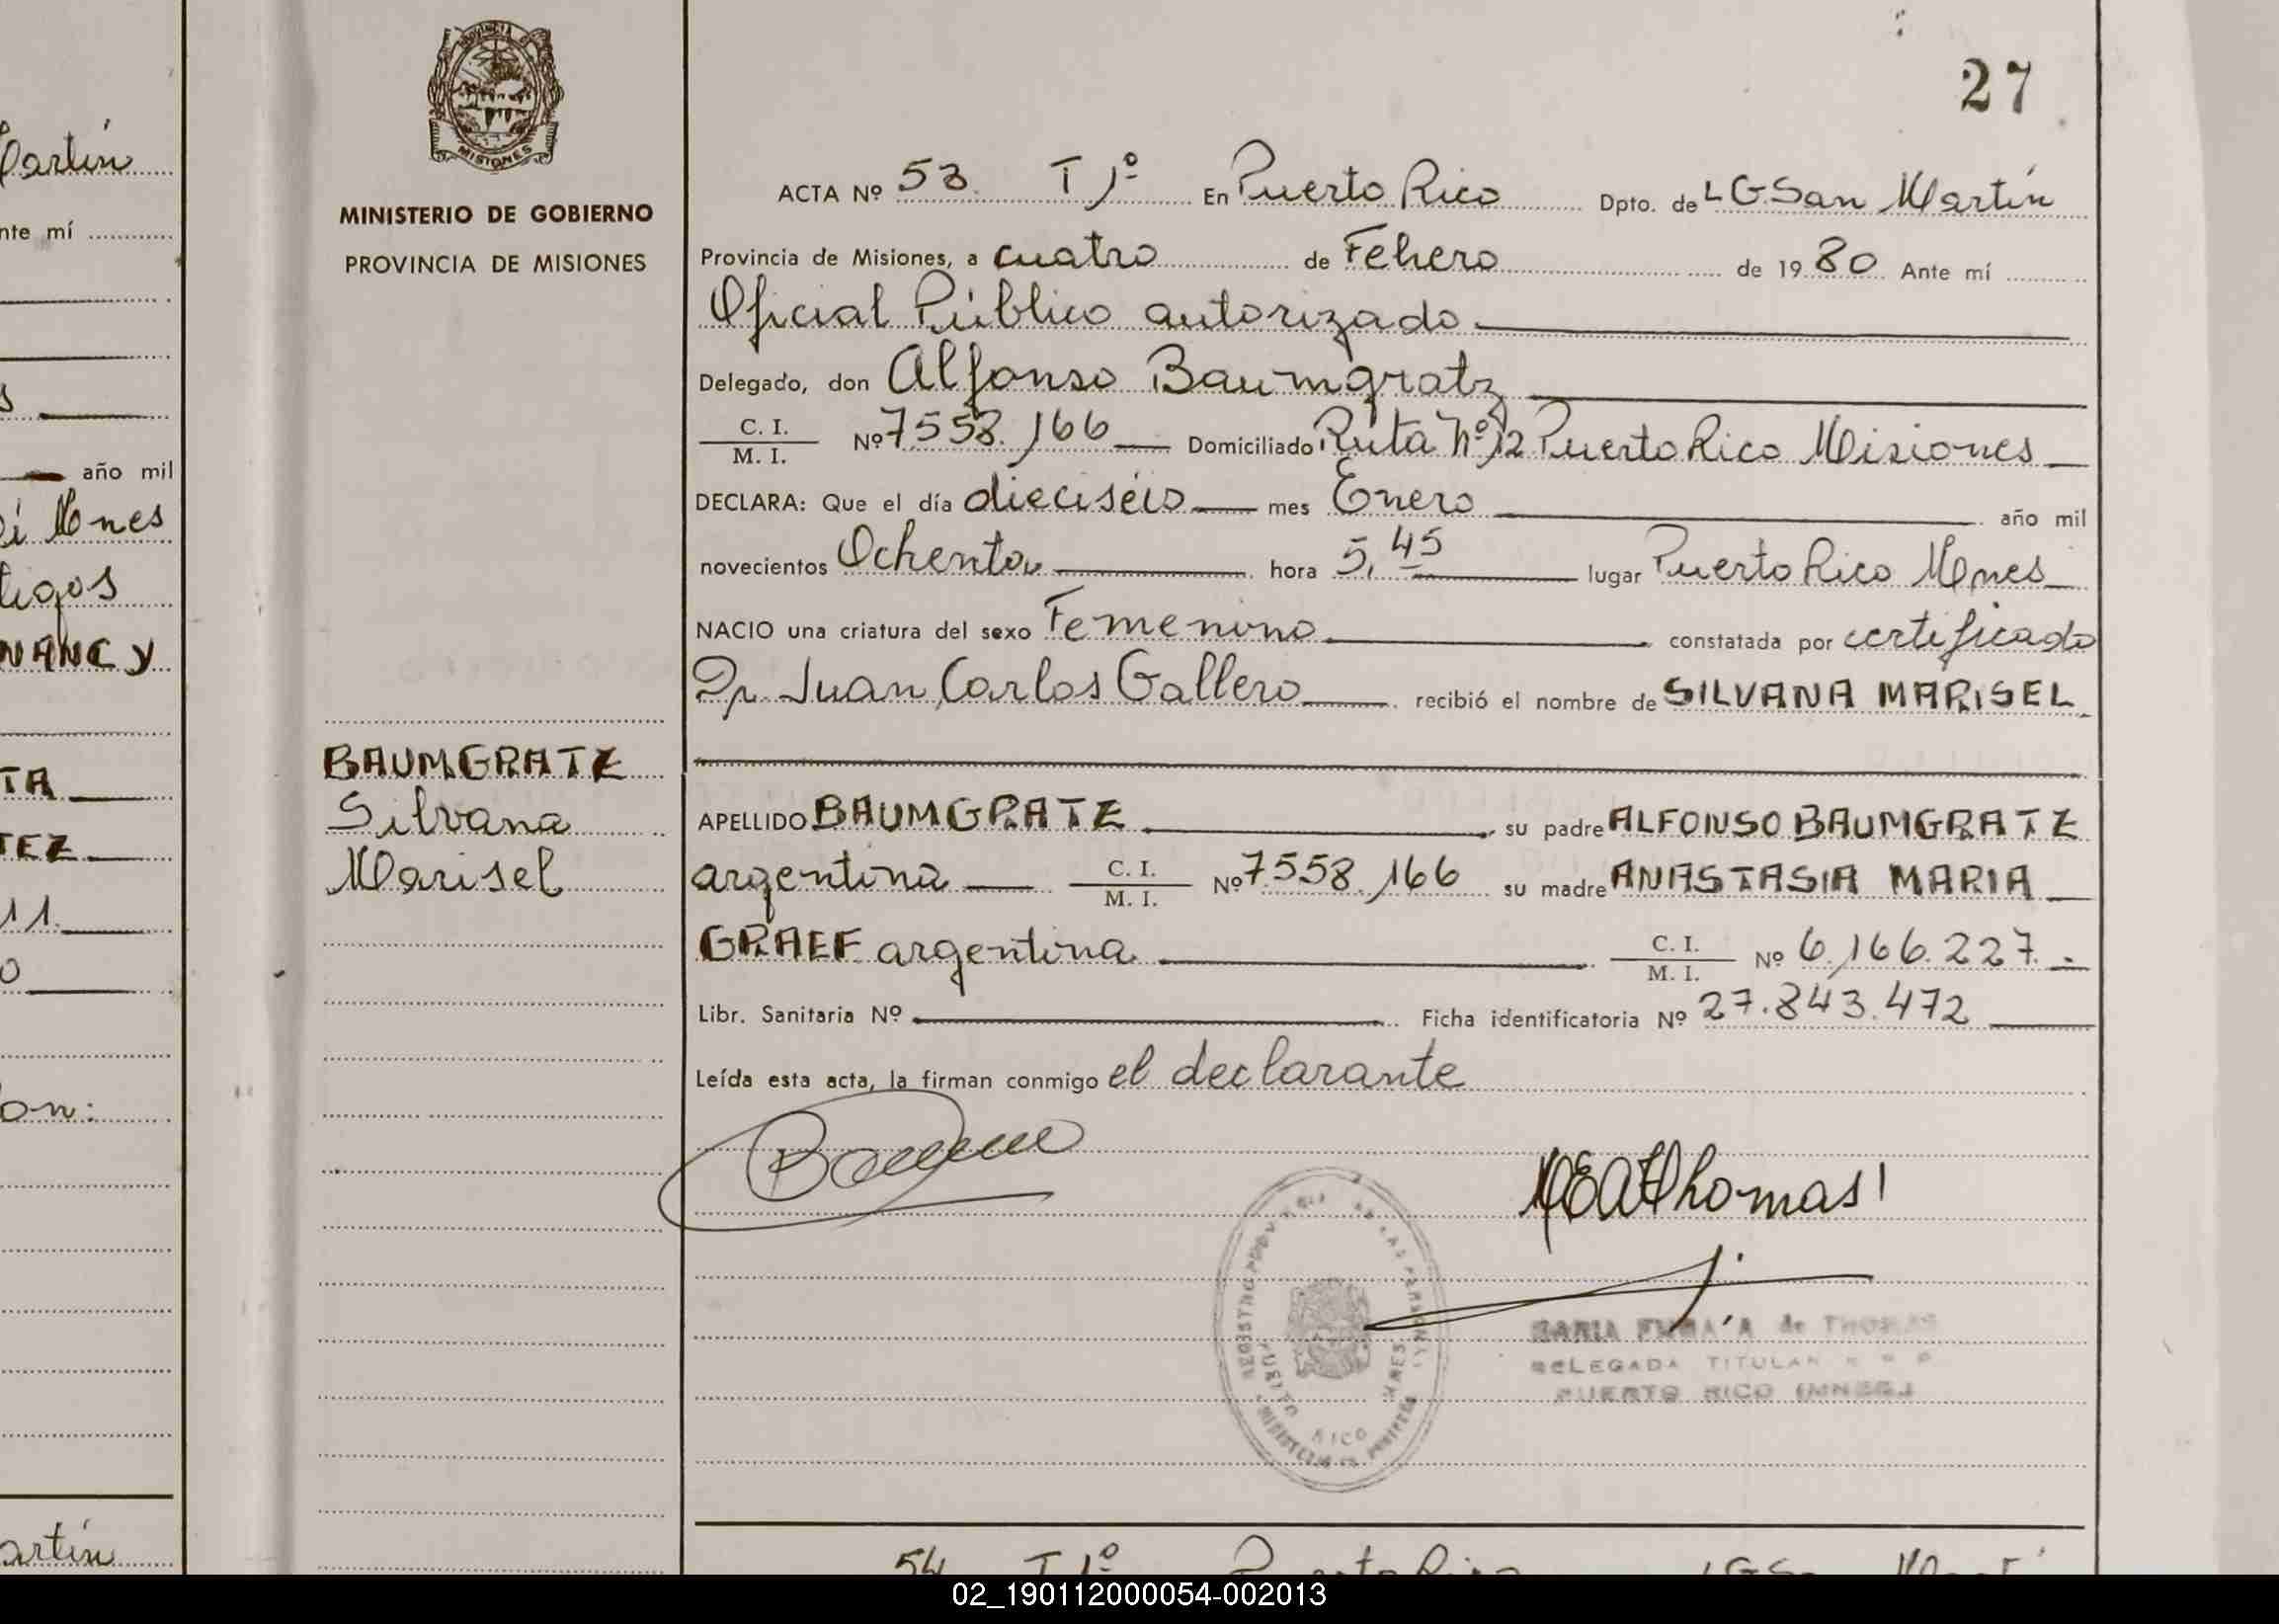 27
PROVINCIA DE
MISIONES
MINISTERIO DE GOBIERNO
PROVINCIA DE MISIONES
BAUMGRATZ
Silvana
Marisel
ACTA Nº 53 T 1º En Puerto Rico Dpto. de L G San Martín
Provincia de Misiones, a cuatro de Febero de 1980 Ante mí
Oficial Público autorizado
Delegado, don Alfonso Baumgratz
C. I. / M. I. Nº 7.558.166 Domiciliado Ruta Nº 12 Puerto Rico Misiones
DECLARA: Que el día dieciséis mes Enero año mil
novecientos Ochenta hora 5,45 lugar Puerto Rico Mnes
NACIO una criatura del sexo Femenino constatada por certificado
Dr. Juan Carlos Gallero recibió el nombre de SILVANA MARISEL
APELLIDO BAUMGRATZ su padre ALFONSO BAUMGRATZ
argentina C. I. / M. I. Nº 7.558.166 su madre ANASTASIA MARIA
GRAEF argentina C. I. / M. I. Nº 6.166.227.
Libr. Sanitaria Nº Ficha identificatoria Nº 27.843.472
Leída esta acta, la firman conmigo el declarante
Thomas
MARIA de THOMAS
DELEGADA TITULAR
PUERTO RICO (MNES.)
PUERTO RICO MNES
artín
nte mí
s
año mil
Mnes
tigos
NANCY
TA
TEZ
11.
0
on:
artín
54 T 1º Puerto Rico L G San Martín
02_190112000054-002013